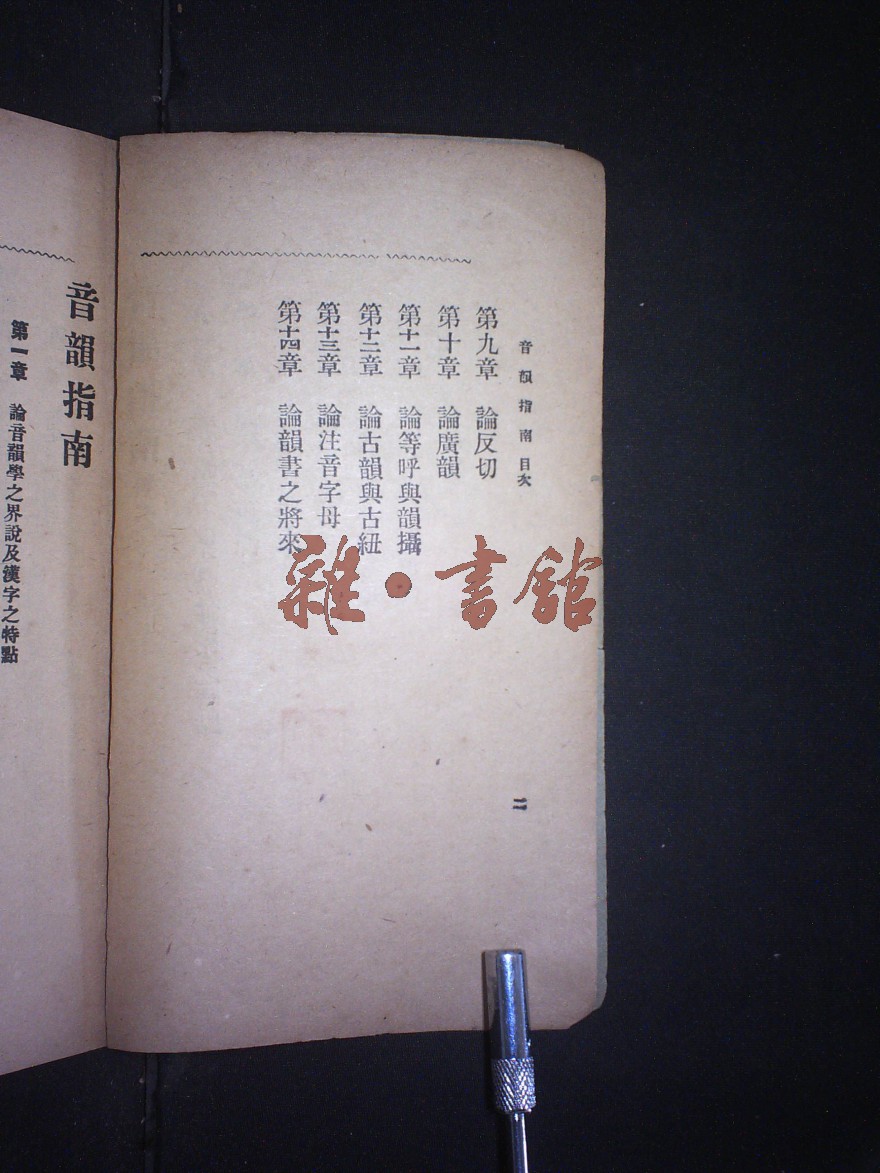 音韻指南目次
第九章　論反切
第十章　論廣韻
第十一章　論等呼與韻攝
第十二章　論古韻與古紐
第十三章　論注音字母
第十四章　論韻書之將來
二
音韻指南
第一章　論音韻學之界說及漢字之特點
雜·書館